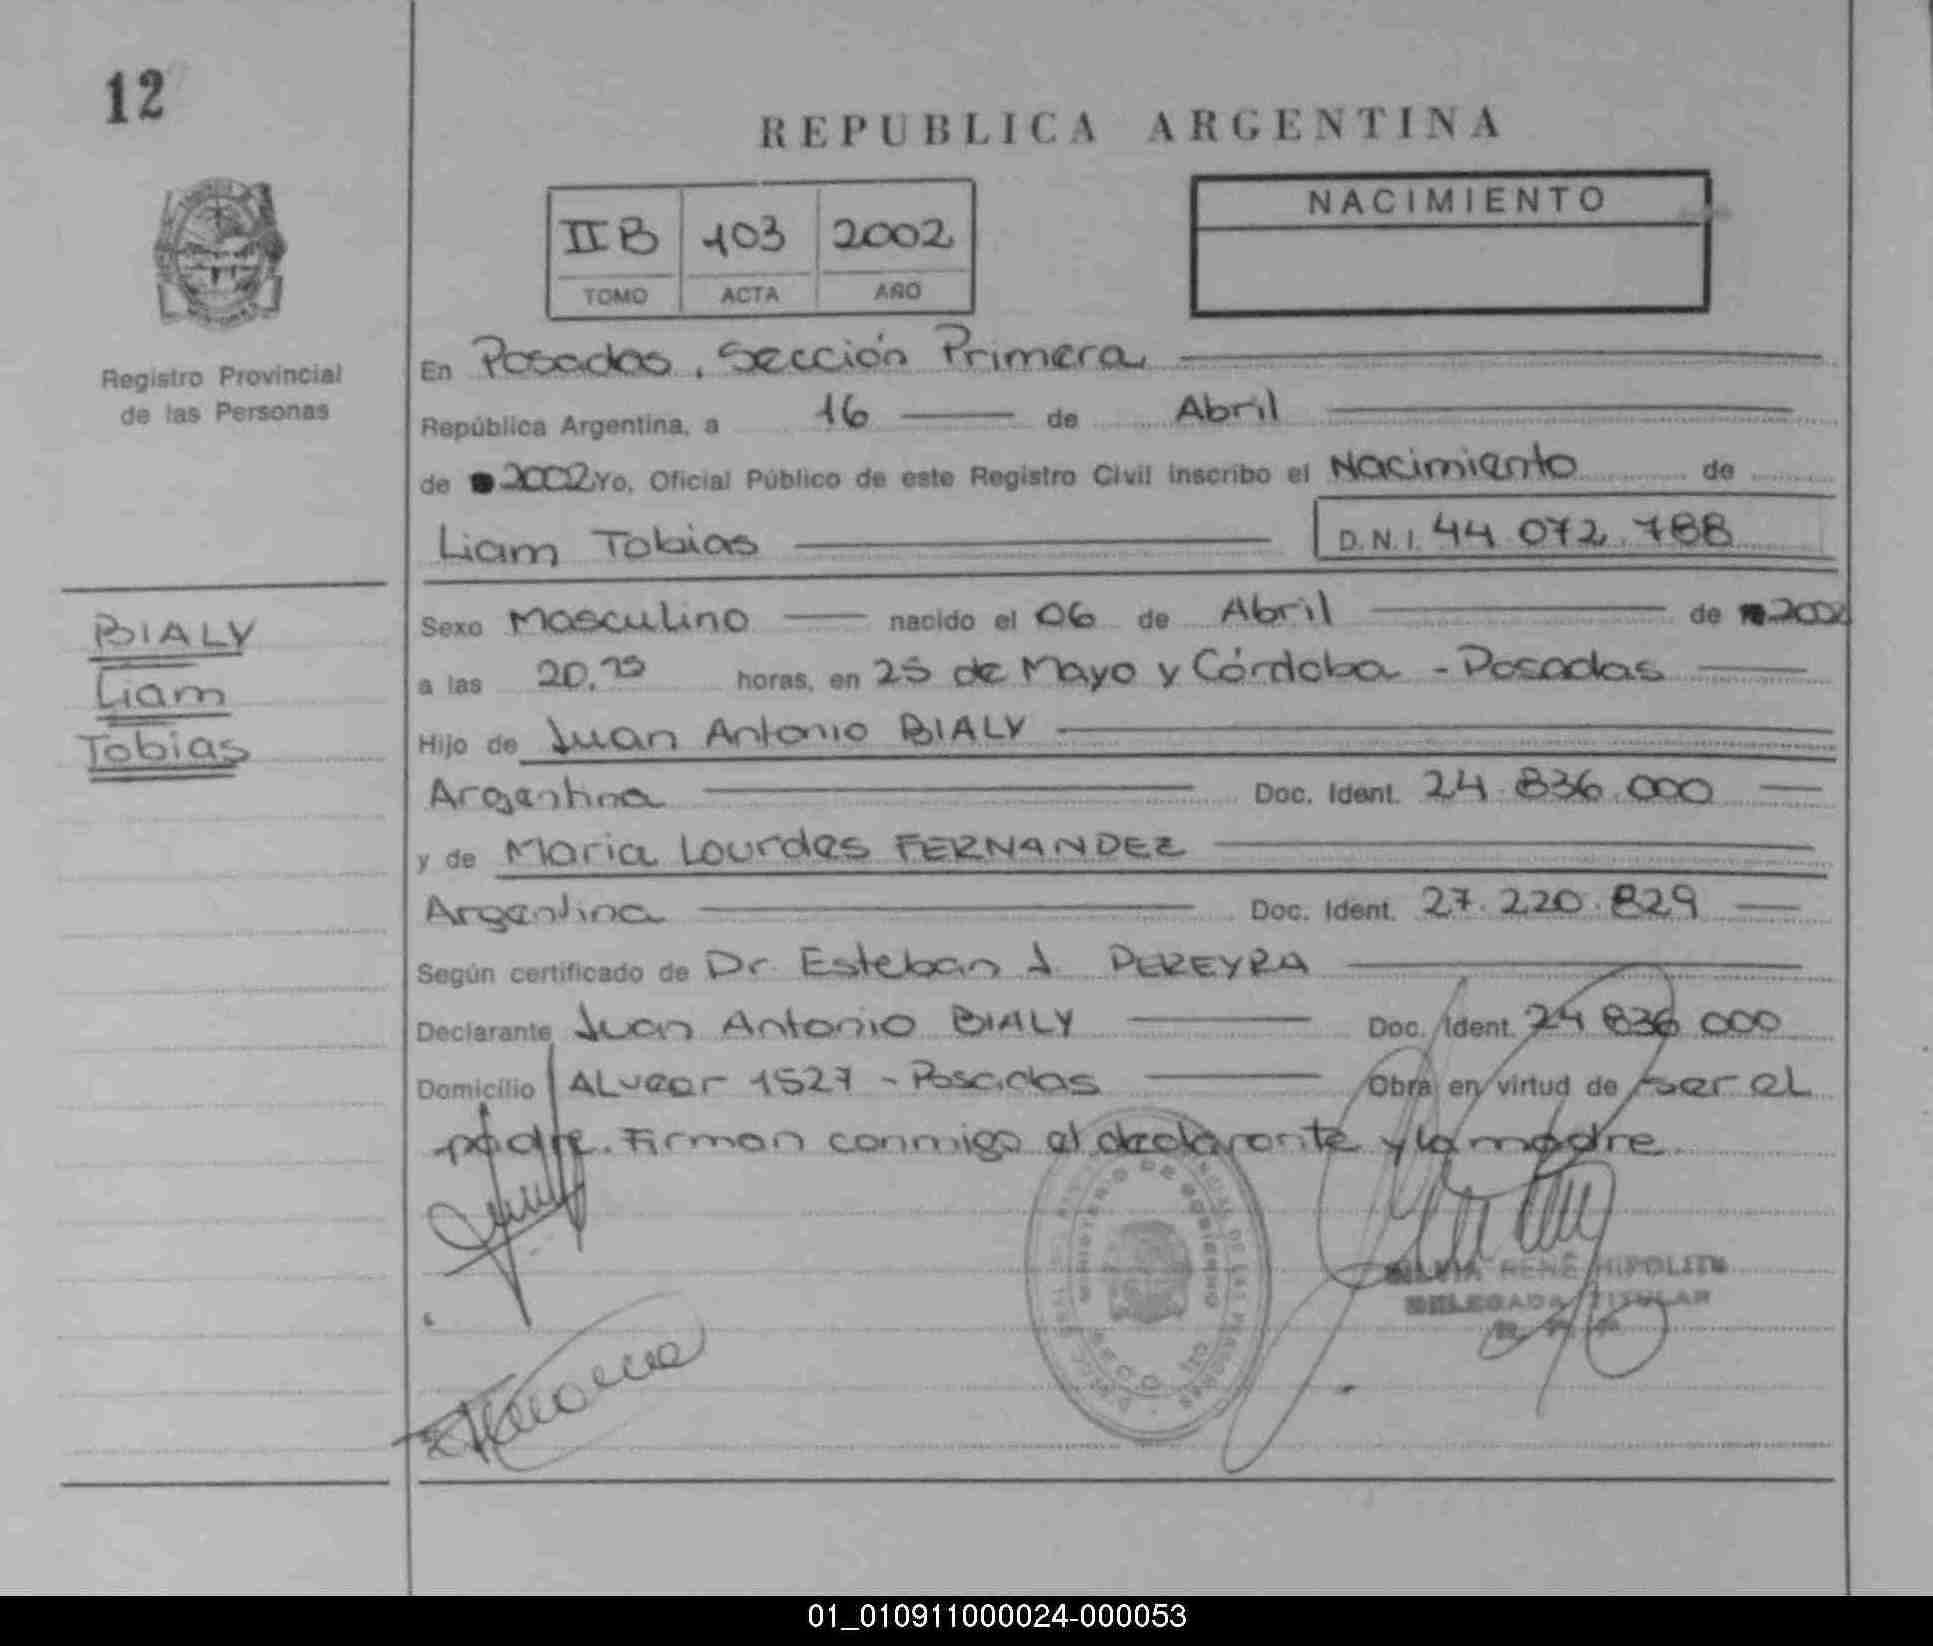 12
REPUBLICA ARGENTINA
II B 103 2002
TOMO ACTA AÑO
NACIMIENTO
Registro Provincial
de las Personas
En Posadas, Sección Primera
República Argentina, a 16 de Abril
de 2002 Yo, Oficial Público de este Registro Civil inscribo el Nacimiento de
Liam Tobias D.N.I. 44.072.788
BIALY
Liam
Tobias
Sexo Masculino nacido el 06 de Abril de 2002
a las 20, horas, en 25 de Mayo y Córdoba - Posadas
Hijo de Juan Antonio BIALY
Argentina Doc. Ident. 24.836.000
y de Maria Lourdes FERNANDEZ
Argentina Doc. Ident. 27.220.829
Según certificado de Dr. Esteban J. PEREYRA
Declarante Juan Antonio BIALY Doc. Ident. 24 836 000
Domicilio ALvear 1527 - Posadas Obra en virtud de ser el
padre. Firman conmigo el declarante y la madre
MINISTERIO DE GOBIERNO
SILVIA RENÉ HIPOLITO
DELEGADA TITULAR
01_010911000024-000053